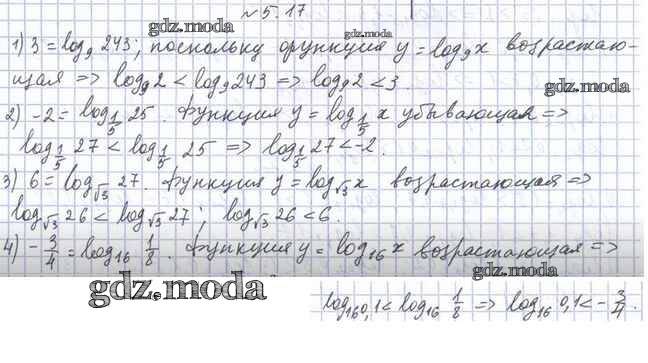 № 5.17
gdz.moda
1) 3 = log₉ 243; поскольку функция y = log₉ x возрастаю-
gdz.moda
щая => log₉ 2 < log₉ 243 => log₉ 2 < 3.
gdz.moda
2) -2 = log_{1/5} 25. Функция y = log_{1/5} x убывающая =>
gdz.moda
log_{1/5} 27 < log_{1/5} 25 => log_{1/5} 27 < -2.
3) 6 = log_{√3} 27. Функция y = log_{√3} x возрастающая =>
gdz.moda
log_{√3} 26 < log_{√3} 27; log_{√3} 26 < 6.
gdz.moda
4) -3/4 = log₁₆ 1/8. Функция y = log₁₆ x возрастающая =>
gdz.moda
gdz.moda
gdz.moda
log₁₆ 0,1 < log₁₆ 1/8 => log₁₆ 0,1 < -3/4.